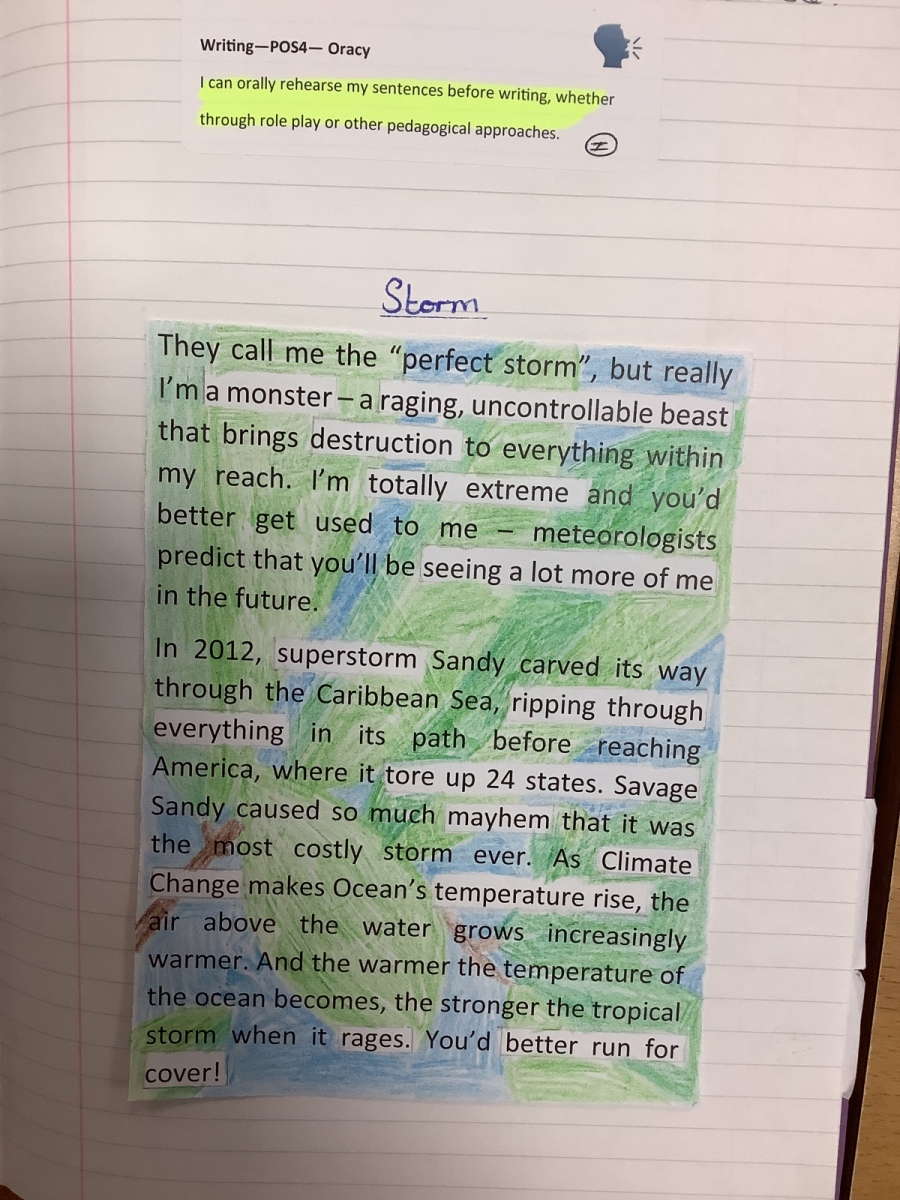 Writing—POS4— Oracy
I can orally rehearse my sentences before writing, whether
through role play or other pedagogical approaches.
I
Storm
They call me the “perfect storm”, but really
I’m a monster – a raging, uncontrollable beast
that brings destruction to everything within
my reach. I’m totally extreme and you’d
better get used to me – meteorologists
predict that you’ll be seeing a lot more of me
in the future.
In 2012, superstorm Sandy carved its way
through the Caribbean Sea, ripping through
everything in its path before reaching
America, where it tore up 24 states. Savage
Sandy caused so much mayhem that it was
the most costly storm ever. As Climate
Change makes Ocean’s temperature rise, the
air above the water grows increasingly
warmer. And the warmer the temperature of
the ocean becomes, the stronger the tropical
storm when it rages. You’d better run for
cover!